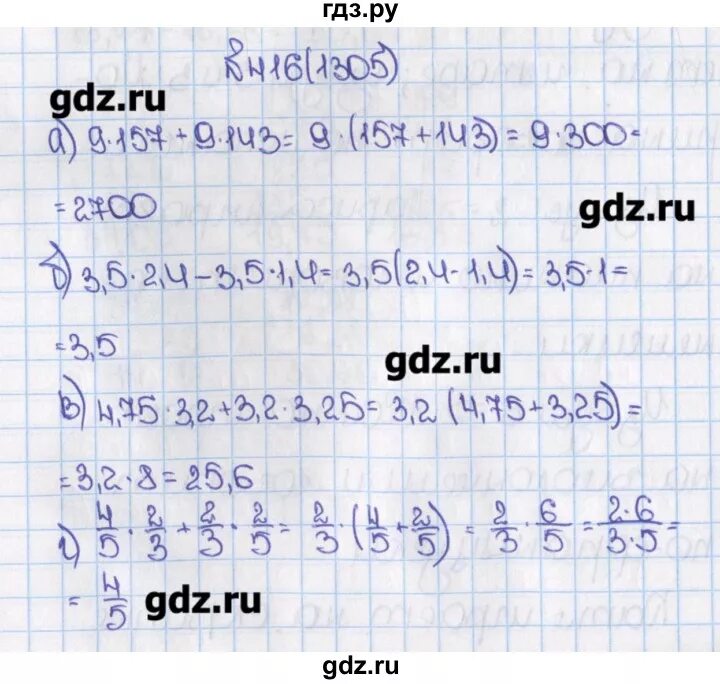 гдз.ру
№ 416(1305)
gdz.ru
а) 9·157+9·143= 9·(157+143)= 9·300=
=2700
gdz.ru
б) 3,5·2,4-3,5·1,4=3,5(2,4-1,4)=3,5·1=
=3,5
gdz.ru
в) 4,75·3,2+3,2·3,25=3,2(4,75+3,25)=
=3,2·8=25,6
г) 4/5·2/3+2/3·2/5= 2/3·(4/5+2/5)= 2/3·6/5= 2·6/3·5=
= 4/5
gdz.ru
gdz.ru